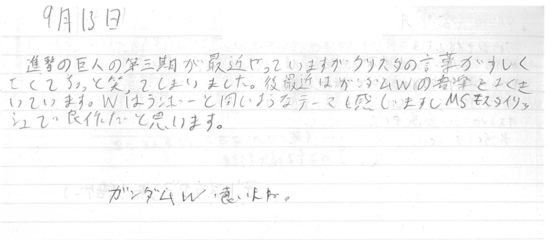 9月13日
進撃の巨人の第三期が最近やっていますがクリスタの言葉がすしく
さくてちょっと笑ってしまいました。後最近はガンダムWの音楽をよくき
いています。Wはランボーと同じようなテーマも感じますしMSもスタイリッ
シュで良作だと思います。
ガンダムW 良いよね。